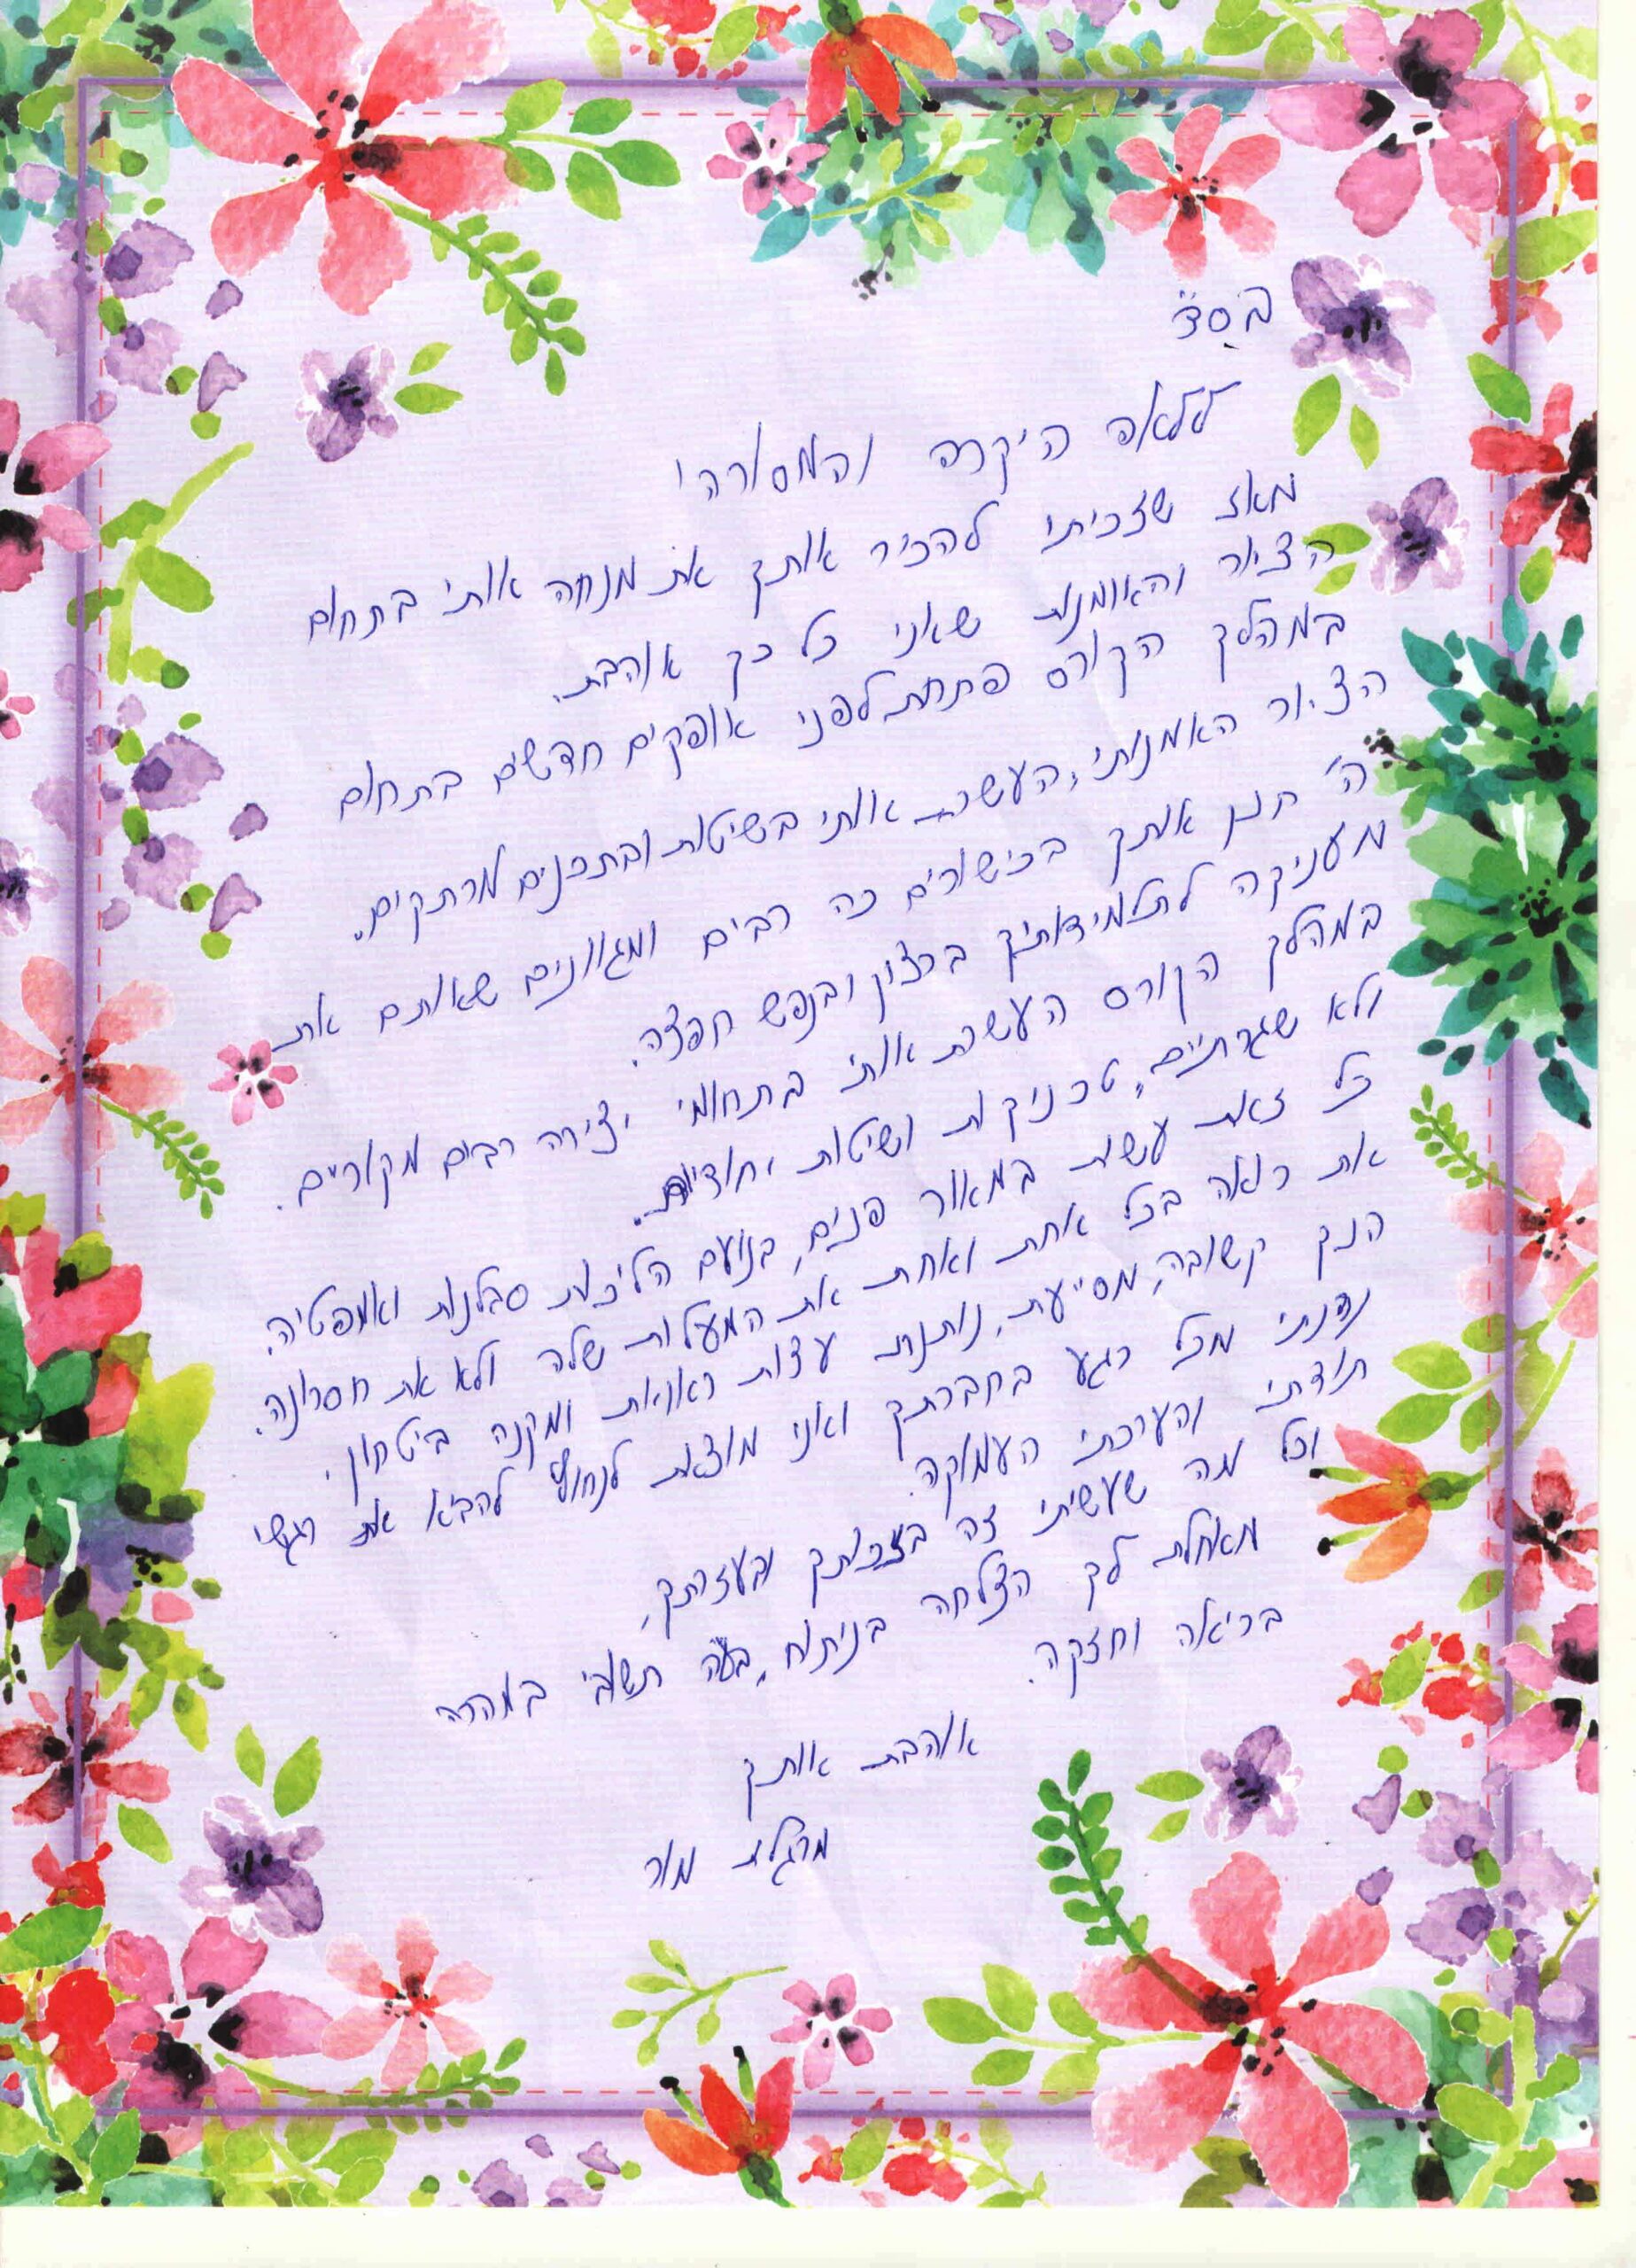 בס"ד
ללאה היקרה והמסורה!
מאז שזכיתי להכיר אותך את מנחה אותי בתחום
הציור והאומנות שאני כל כך אוהבת.
במהלך הקורס פתחת לפני אופקים חדשים בתחום
הציור האמנותי, העשרת אותי בשיטות ובתכנים מרתקים.
ה' חנן אותך בכישורים כה רבים ומגוונים שאותם את
מעניקה לתלמידותיך ברצון ובנפש חפצה.
במהלך הקורס העשרת אותי בתחומי יצירה רבים מקוריים.
ולא שגרתיים, טכניקות ושיטות יחודיות.
כל זאת עשית במאור פנים, בנועם הליכות סבלנות ואמפטיה.
את רואה בכל אחת ואחת את המעלות שלה ולא את חסרונה.
הנך קשובה, מסייעת, נותנת עצות ראויות ומקנה ביטחון.
נהנתי מכל רגע בחברתך ואני מוצאת לנחוץ להביא את רגשי
תודתי והערכתי העמוקה.
וכל מה שעשיתי זה בזכותך ובעזרתך,
מאחלת לך הצלחה בניתוח, בע"ה תשובי במהרה
בריאה וחזקה.
אוהבת אותך
מרגלית מור